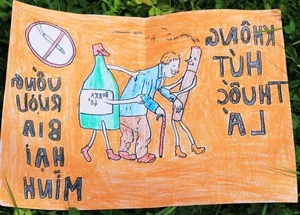 KHÔNG
HÚT
THUỐC
LÁ
UỐNG
RƯỢU
BIA
HẠI
MÌNH